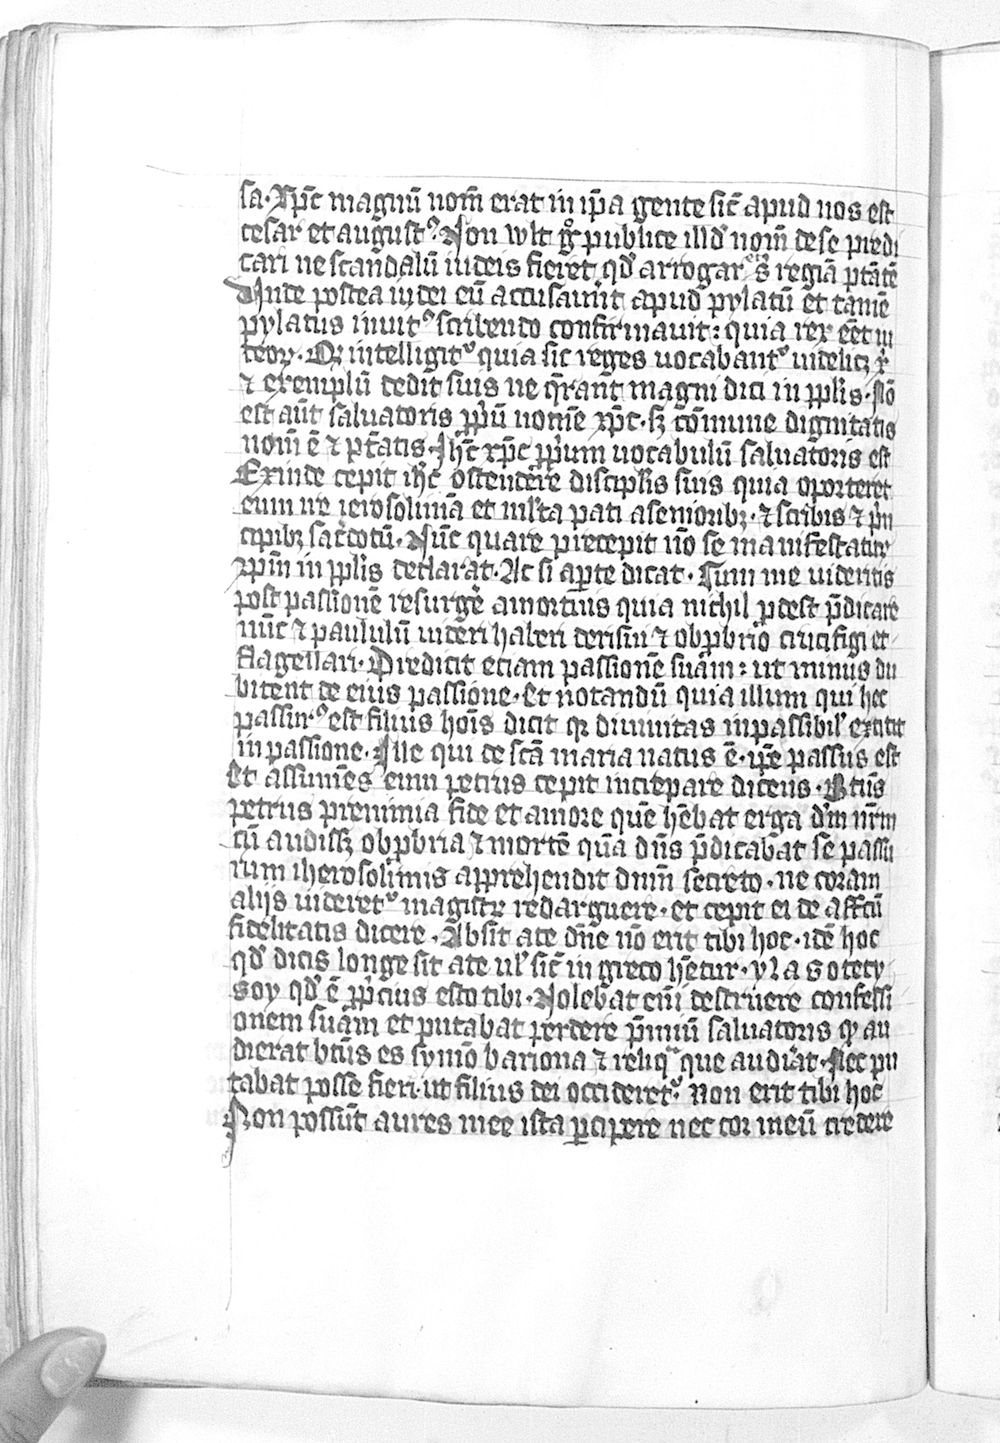 sa. Xp̄c magnū nom̄ erat in ip̄a gente sic̄ apud nos est
cesar et august⁹. Non wlt gͦ publice illd' nom̄ de se predi
cari ne scandalū iudeis fieret qd' arrogaret' s̄ regiā ptātē
Unde postea iudei eū accusauūt apud pylatū et tamē
pylatus inuit⁹ scribendo confirmauit: quia rex eēt iu
deoꝝ. Qꝫ intelligit' quia sic reges uocabant' uidelicꝫ
⁊ exemplū dedit suis ne q̄rant magni dici in ppl'is. Nō
est aūt saluatoris pp̄ū nomē xp̄c. sꝫ cōmune dignitatis
nom̄ ē ⁊ pt̄atis. Ih̄c xp̄c pp̄ium uocabulū saluatoris est
Exinde cepit ih̄c ostendere discipl'is suis quia oporteret
eum ire ierosolimā et ml'ta pati a senioribꝫ. ⁊ scribis ⁊ p̄n
cipibꝫ sac̄dotū. Nūc quare precepit nō se manifestatur
xp̄m in ppl'is declarat. Ac si aꝑte dicat. Cum me uideritis
post passionē resurgē a mortuis quia nichil ꝓdest p̄dicare
nūc ⁊ paululū uideri haberi derisui ⁊ obꝓbrio crucifigi et
flagellari. Predicit etiam passionē suam: ut minus du
bitent de eius passione. Et notandū quia illum qui hec
passur⁹ est filius hoīs dicit qꝫ diuinitas inpassibil' extitit
in passione. Ille qui de scā maria natus ē. ip̄e passus est
Et assumēs eum petrus cepit increpare dicens. Btūs
petrus pre nimia fide et amore quē hēbat erga d'm nr̄m
cū audissꝫ obꝓbria ⁊ mortē quā dn̄s p̄dicabat se passu
rum iherosolimis apprehendit dnm̄ secreto. ne coram
alijs uideret' magistꝝ redarguere. et cepit ei de affc̄u
fidelitatis dicere. Absit a te dn̄e nō erit tibi hoc. idē hoc
qd' dicis longe sit a te ul' sic̄ in greco hētur. ylasotecy
soy qd' ē pp̄cius esto tibi. Nolebat eni destruere confessi
onem suam et putabat perdere p̄miū saluatoris qꝫ au
dierat btūs es symō bariona ⁊ reliqᵃ que audiāt. Nec pu
tabat posse fieri. ut filius dei occideret'. Non erit tibi hoc
Non possūt aures mee ista ꝑcipere nec cor meū credere